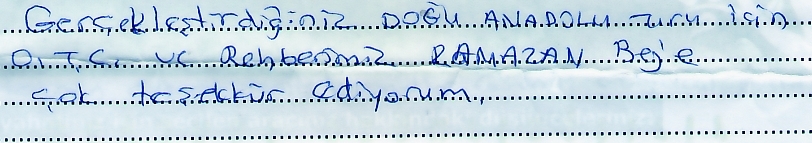 Gerçekleştirdiğiniz DOĞU ANADOLU turu için
O.T.C. ve Rehberimiz RAMAZAN Bey'e
çok teşekkür ediyorum,